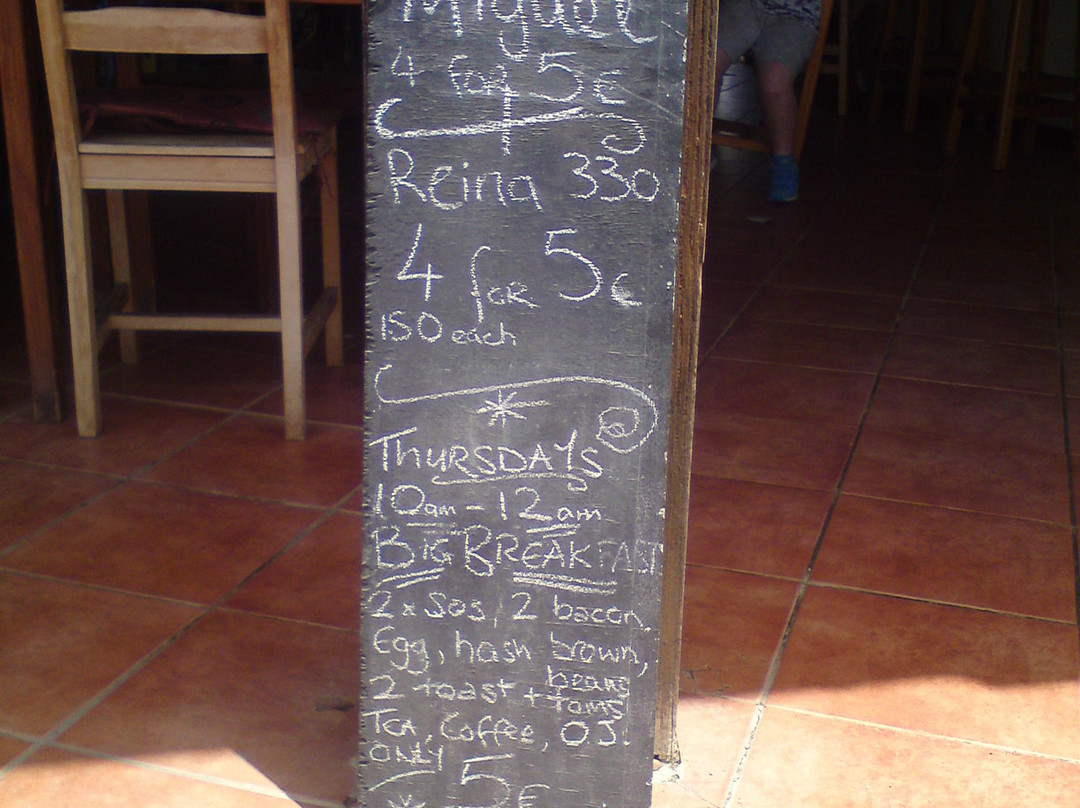 Miguel
4 for 5€
Reina 330
4 for 5€
150 each
THURSDAYS
10am - 12am
BIG BREAKFAST
2 x Sos, 2 bacon,
Egg, hash brown,
2 toast + beans
toms
TEA, Coffee, O.J.
ONLY
5€